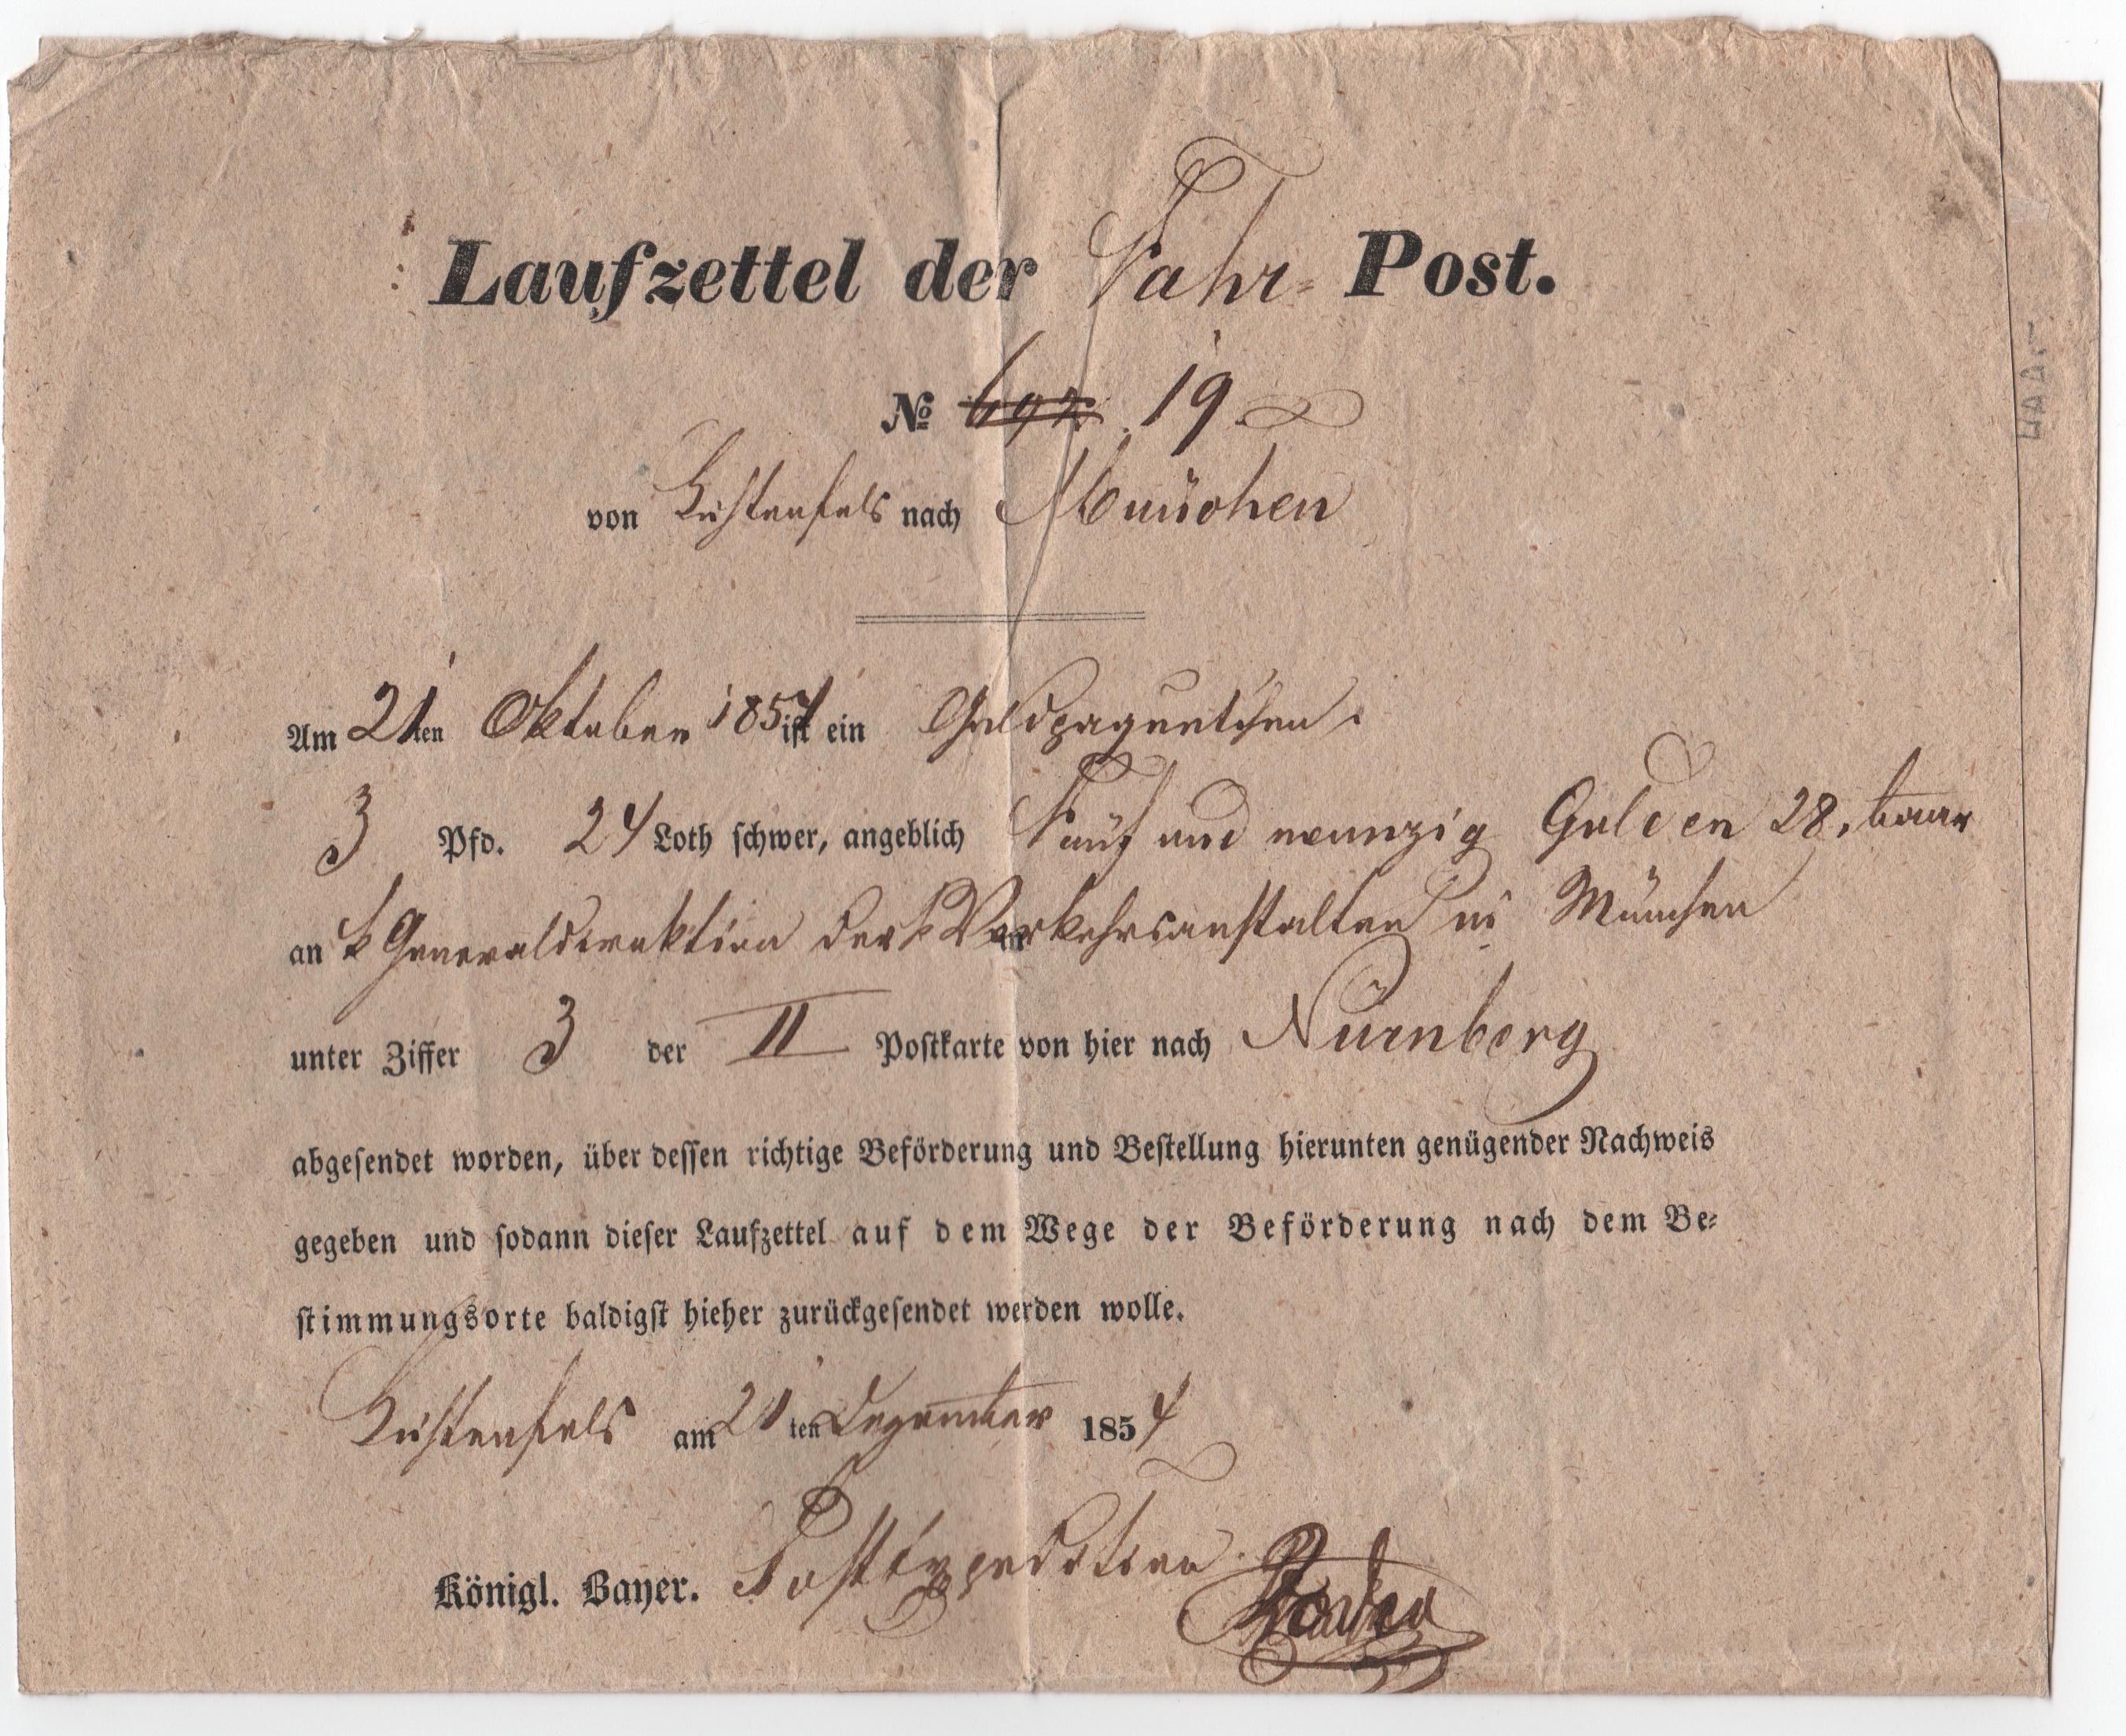 Laufzettel der Fahr- Post.
№ 697. 19
von Lichtenfels nach München
Am 21ten Oktober 1854 ist ein Geldpaquetchen.
3 Pfd. 24 Loth schwer, angeblich Fünf und neunzig Gulden 28. baar
an k Generaldirektion der k Verkehrsanstalten in München
unter Ziffer 3 der II Postkarte von hier nach Nürnberg
abgesendet worden, über dessen richtige Beförderung und Bestellung hierunten genügender Nachweis
gegeben und sodann dieser Laufzettel auf dem Wege der Beförderung nach dem Be-
stimmungsorte baldigst hieher zurückgesendet werden wolle.
Lichtenfels am 21ten Dezember 1854
Königl. Bayer. Postexpedition.